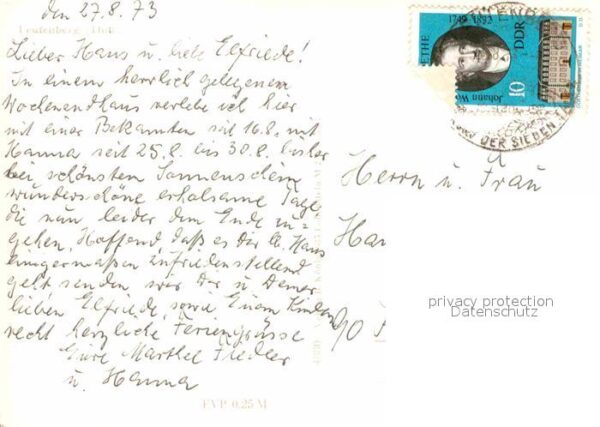 den 27.8.73
Leutenberg Thür.
Lieber Hans u. liebe Elfriede!
In einem herrlich gelegenen
Wochenendhaus verlebe ich hier
mit einer Bekannten seit 16.8. mit
Hanna seit 25.8. bis 30.8. bisher
bei schönsten Sonnenschein
wunderschöne erholsame Tage
die nun leider dem Ende zu=
gehen. Hoffend, daß es Dir lb. Hans
einigermaßen zufriedenstellend
geht senden wir Dir u. Deiner
lieben Elfriede, sowie Euren Kindern
recht herzliche Feriengrüsse
Eure Marthel Fiedler
u. Hanna
EVP 0,25 M
1749-1832
DDR
10
Johann Wo
DER SIEBEN
Herrn u. Frau
Han
90
privacy protection
Datenschutz